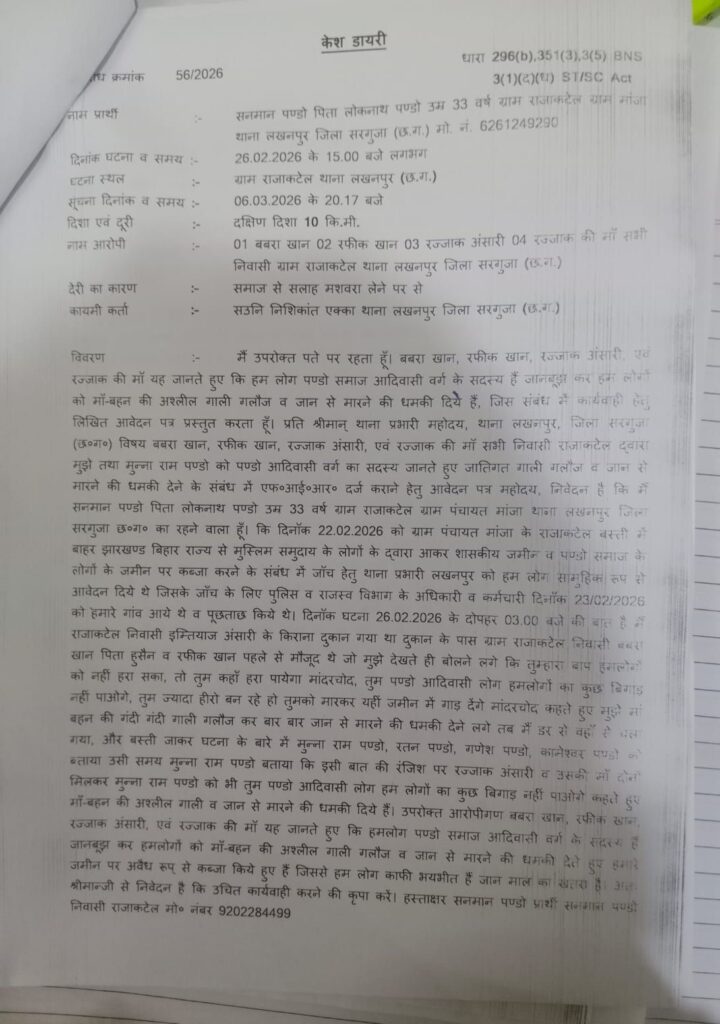 केश डायरी
धारा 296(b),351(3),3(5) BNS
क्रमांक 56/2026 3(1)(द)(ध) ST/SC Act
नाम प्रार्थी :- सनमान पण्डो पिता लोकनाथ पण्डो उम्र 33 वर्ष ग्राम राजाकटेल ग्राम मांजा
थाना लखनपुर जिला सरगुजा (छ.ग.) मो. नं. 6261249290
दिनांक घटना व समय :- 26.02.2026 के 15.00 बजे लगभग
घटना स्थल :- ग्राम राजाकटेल थाना लखनपुर (छ.ग.)
सूचना दिनांक व समय :- 06.03.2026 के 20.17 बजे
दिशा एवं दूरी :- दक्षिण दिशा 10 कि.मी.
नाम आरोपी :- 01 बबरा खान 02 रफीक खान 03 रज्जाक अंसारी 04 रज्जाक की माँ सभी
निवासी ग्राम राजाकटेल थाना लखनपुर जिला सरगुजा (छ.ग.)
देरी का कारण :- समाज से सलाह मशवरा लेने पर से
कायमी कर्ता :- सउनि निशिकांत एक्का थाना लखनपुर जिला सरगुजा (छ.ग.)
विवरण :- मैं उपरोक्त पते पर रहता हूँ। बबरा खान, रफीक खान, रज्जाक अंसारी, एवं
रज्जाक की माँ यह जानते हुए कि हम लोग पण्डो समाज आदिवासी वर्ग के सदस्य हैं जानबूझ कर हम लोगों
को माँ-बहन की अश्लील गाली गलौज व जान से मारने की धमकी दिये हैं, जिस संबंध में कार्यवाही हेतु
लिखित आवेदन पत्र प्रस्तुत करता हूँ। प्रति श्रीमान् थाना प्रभारी महोदय, थाना लखनपुर, जिला सरगुजा
(छ०ग०) विषय बबरा खान, रफीक खान, रज्जाक अंसारी, एवं रज्जाक की माँ सभी निवासी राजाकटेल द्वारा
मुझे तथा मुन्ना राम पण्डो को पण्डो आदिवासी वर्ग का सदस्य जानते हुए जातिगत गाली गलौज व जान से
मारने की धमकी देने के संबंध में एफ०आई०आर० दर्ज कराने हेतु आवेदन पत्र महोदय, निवेदन है कि मैं
सनमान पण्डो पिता लोकनाथ पण्डो उम्र 33 वर्ष ग्राम राजाकटेल ग्राम पंचायत मांजा थाना लखनपुर जिला
सरगुजा छ०ग० का रहने वाला हूँ। कि दिनॉक 22.02.2026 को ग्राम पंचायत मांजा के राजाकटेल बस्ती में
बाहर झारखण्ड बिहार राज्य से मुस्लिम समुदाय के लोगों के द्वारा आकर शासकीय जमीन व पण्डो समाज के
लोगों के जमीन पर कब्जा करने के संबंध में जाँच हेतु थाना प्रभारी लखनपुर को हम लोग सामुहिक रूप से
आवेदन दिये थे जिसके जाँच के लिए पुलिस व राजस्व विभाग के अधिकारी व कर्मचारी दिनॉक 23/02/2026
को हमारे गांव आये थे व पूछताछ किये थे। दिनॉक घटना 26.02.2026 के दोपहर 03.00 बजे की बात है मैं
राजाकटेल निवासी इम्तियाज अंसारी के किराना दुकान गया था दुकान के पास ग्राम राजाकटेल निवासी बबरा
खान पिता हुसैन व रफीक खान पहले से मौजूद थे जो मुझे देखते ही बोलने लगे कि तुम्हारा बाप हमलोगों
को नहीं हरा सका, तो तुम कहाँ हरा पायेगा मांदरचोद, तुम पण्डो आदिवासी लोग हमलोगों का कुछ बिगाड़
नहीं पाओगे, तुम ज्यादा हीरो बन रहे हो तुमको मारकर यहीं जमीन में गाड़ देंगे मांदरचोद कहते हुए मुझे माँ
बहन की गंदी गंदी गाली गलौज कर बार बार जान से मारने की धमकी देने लगे तब मैं डर से वहाँ से चला
गया, और बस्ती जाकर घटना के बारे में मुन्ना राम पण्डो, रतन पण्डो, गणेश पण्डो, कामेश्वर पण्डो को
बताया उसी समय मुन्ना राम पण्डो बताया कि इसी बात की रंजिश पर रज्जाक अंसारी व उसकी माँ दोनों
मिलकर मुन्ना राम पण्डो को भी तुम पण्डो आदिवासी लोग हम लोगों का कुछ बिगाड़ नहीं पाओगे कहते हुए
माँ-बहन की अश्लील गाली व जान से मारने की धमकी दिये हैं। उपरोक्त आरोपीगण बबरा खान, रफीक खान,
रज्जाक अंसारी, एवं रज्जाक की माँ यह जानते हुए कि हमलोग पण्डो समाज आदिवासी वर्ग के सदस्य हैं
जानबूझ कर हमलोगों को माँ-बहन की अश्लील गाली गलौज व जान से मारने की धमकी देते हुए हमारे
जमीन पर अवैध रूप से कब्जा किये हुए हैं जिससे हम लोग काफी भयभीत हैं जान माल का खतरा है। अतः
श्रीमान्जी से निवेदन है कि उचित कार्यवाही करने की कृपा करें। हस्ताक्षर सनमान पण्डो प्रार्थी सनमान पण्डो
निवासी राजाकटेल मो० नंबर 9202284499